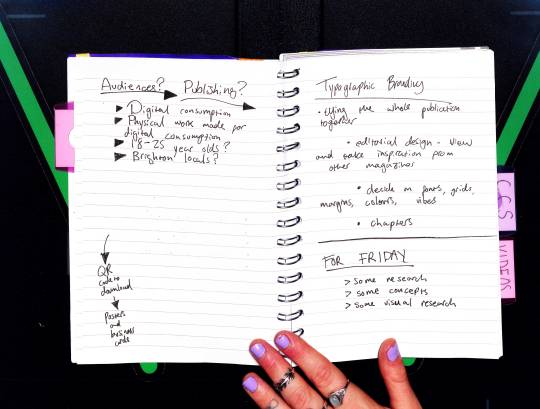 Audiences? Publishing?
Digital consumption
Physical work made for
digital consumption
18-25 year olds?
Brighton locals?
QR
code to
download
posters
and
business
cards
Typographic Branding
• tying the whole publication
together
• editorial design - view
and take inspiration from
other magazines
• decide on fonts, grids,
margins, colours, vibes
• chapters
FOR FRIDAY
> Some research
> some concepts
> some visual research
CGS
VIDEOS